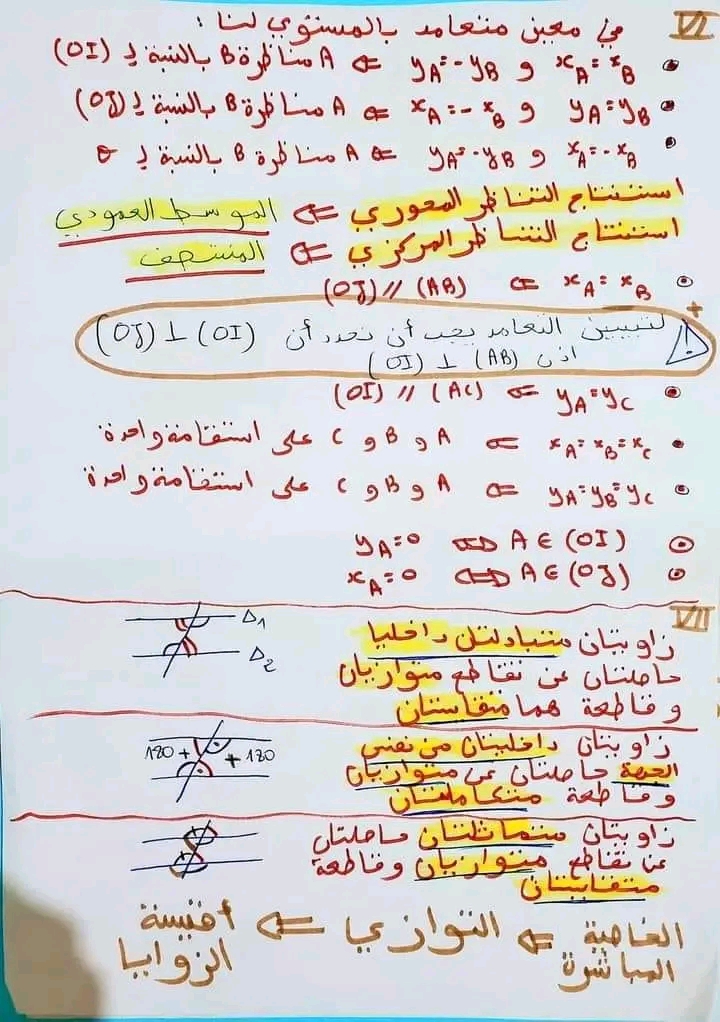 VI في معين متعامد بالمستوي لنا :
• xA = xB و yA = -yB ⇐ A مناظرة B بالنسبة لـ (OI)
• yA = yB و xA = -xB ⇐ A مناظرة B بالنسبة لـ (OJ)
• xA = -xB و yA = -yB ⇐ A مناظرة B بالنسبة لـ O
استنتاج التناظر المحوري ⇐ الموسط العمودي
استنتاج التناظر المركزي ⇐ المنتصف
⊙ xA = xB ⇐ (AB) // (OJ)
+
! لتبيين التعامد يجب أن نحدد أن (OI) ⊥ (OJ)
اذن (AB) ⊥ (OI)
⊙ yA = yC ⇐ (AC) // (OI)
⊙ xA = xB = xC ⇐ A و B و C على استقامة واحدة
⊙ yA = yB = yC ⇐ A و B و C على استقامة واحدة
⊙ A ∈ (OI) ⇔ yA = 0
⊙ A ∈ (OJ) ⇔ xA = 0
VII
زاويتان متبادلتان داخليا
حاصلتان عن تقاطع متوازيان
و قاطعة هما متقايستان
Δ1
Δ2
زاويتان داخليتان من نفس
الجهة حاصلتان عن متوازيان
و قاطعة متكاملتان
180 + + 180
زاويتان متماثلتان حاصلتان
عن تقاطع متوازيان وقاطعة
متقايستان
الخاصية المباشرة ⇐ التوازي ⇐ أقيسة الزوايا